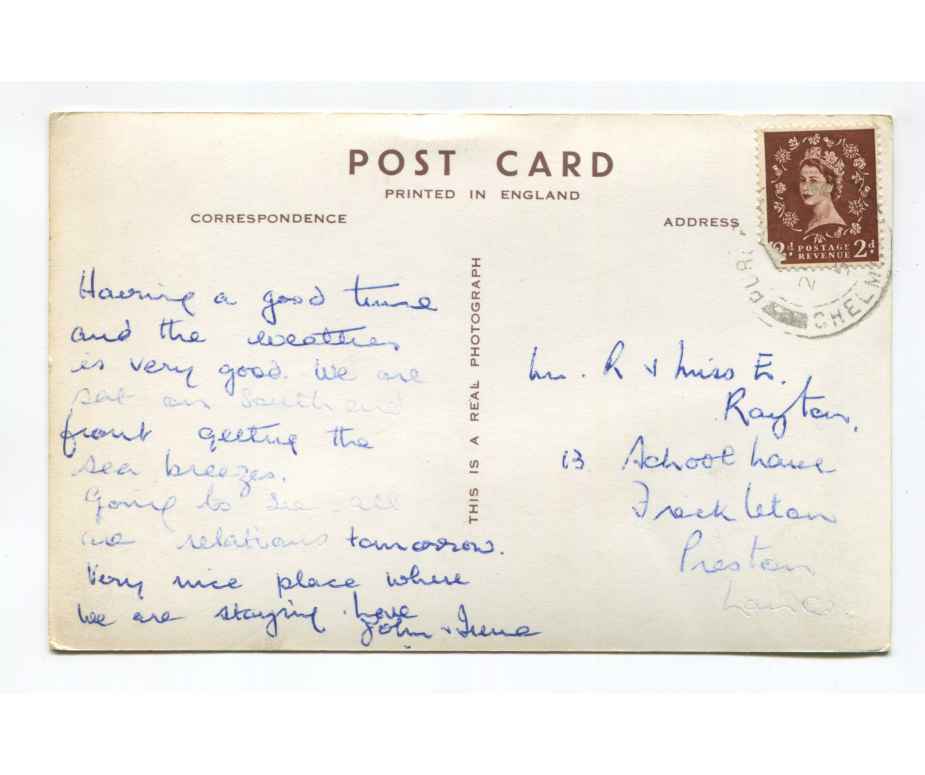 POST CARD
PRINTED IN ENGLAND
CORRESPONDENCE
ADDRESS
2d POSTAGE REVENUE 2d
CHELM
THIS IS A REAL PHOTOGRAPH
Having a good time
and the weather
is very good. We are
sat on Southend
front getting the
sea breezes.
Going to see all
relations tomorrow.
Very nice place where
we are staying. Love
John & Irene
Mr. R & Miss E.
Rayton,
13 School Lane
Freckleton
Preston
Lancs.